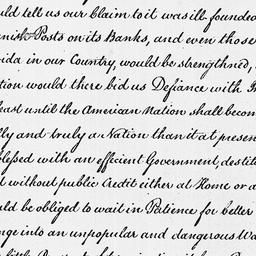 uld tell us our Claim to it was ill founded
nish Posts on its Banks, and even those
ida in our Country, would be strengthned,
tion would there bid us Defiance with I
least until the American Nation shall becom
lly and truly a Nation than it at presen
blessed with an efficient Government, destit
d without public Credit either at Home or a
uld be obliged to wait in Patience for better
nge into an unpopular and dangerous Wa